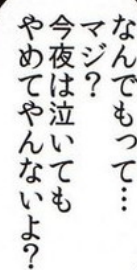 なんでもって…
マジ？
今夜は泣いても
やめてやんないよ？